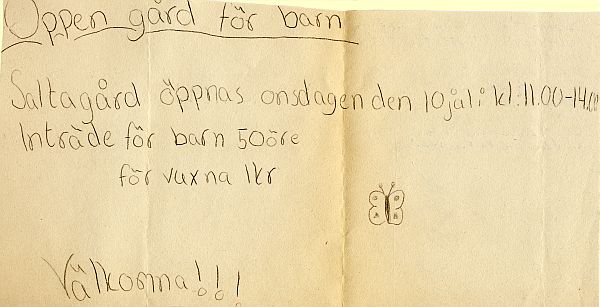 Öppen gård för barn
Saltagård öppnas onsdagen den 10 juli kl. 11.00-14.00
Inträde för barn 50 öre
för vuxna 1 kr
Välkomna!!!